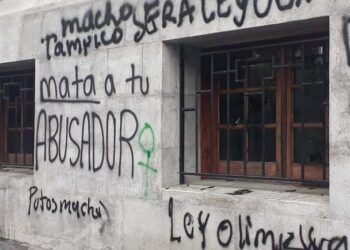 macho SERA LEY
Tampico
mata a tu
ABUSADOR
Putos macha
Ley Olimpia va